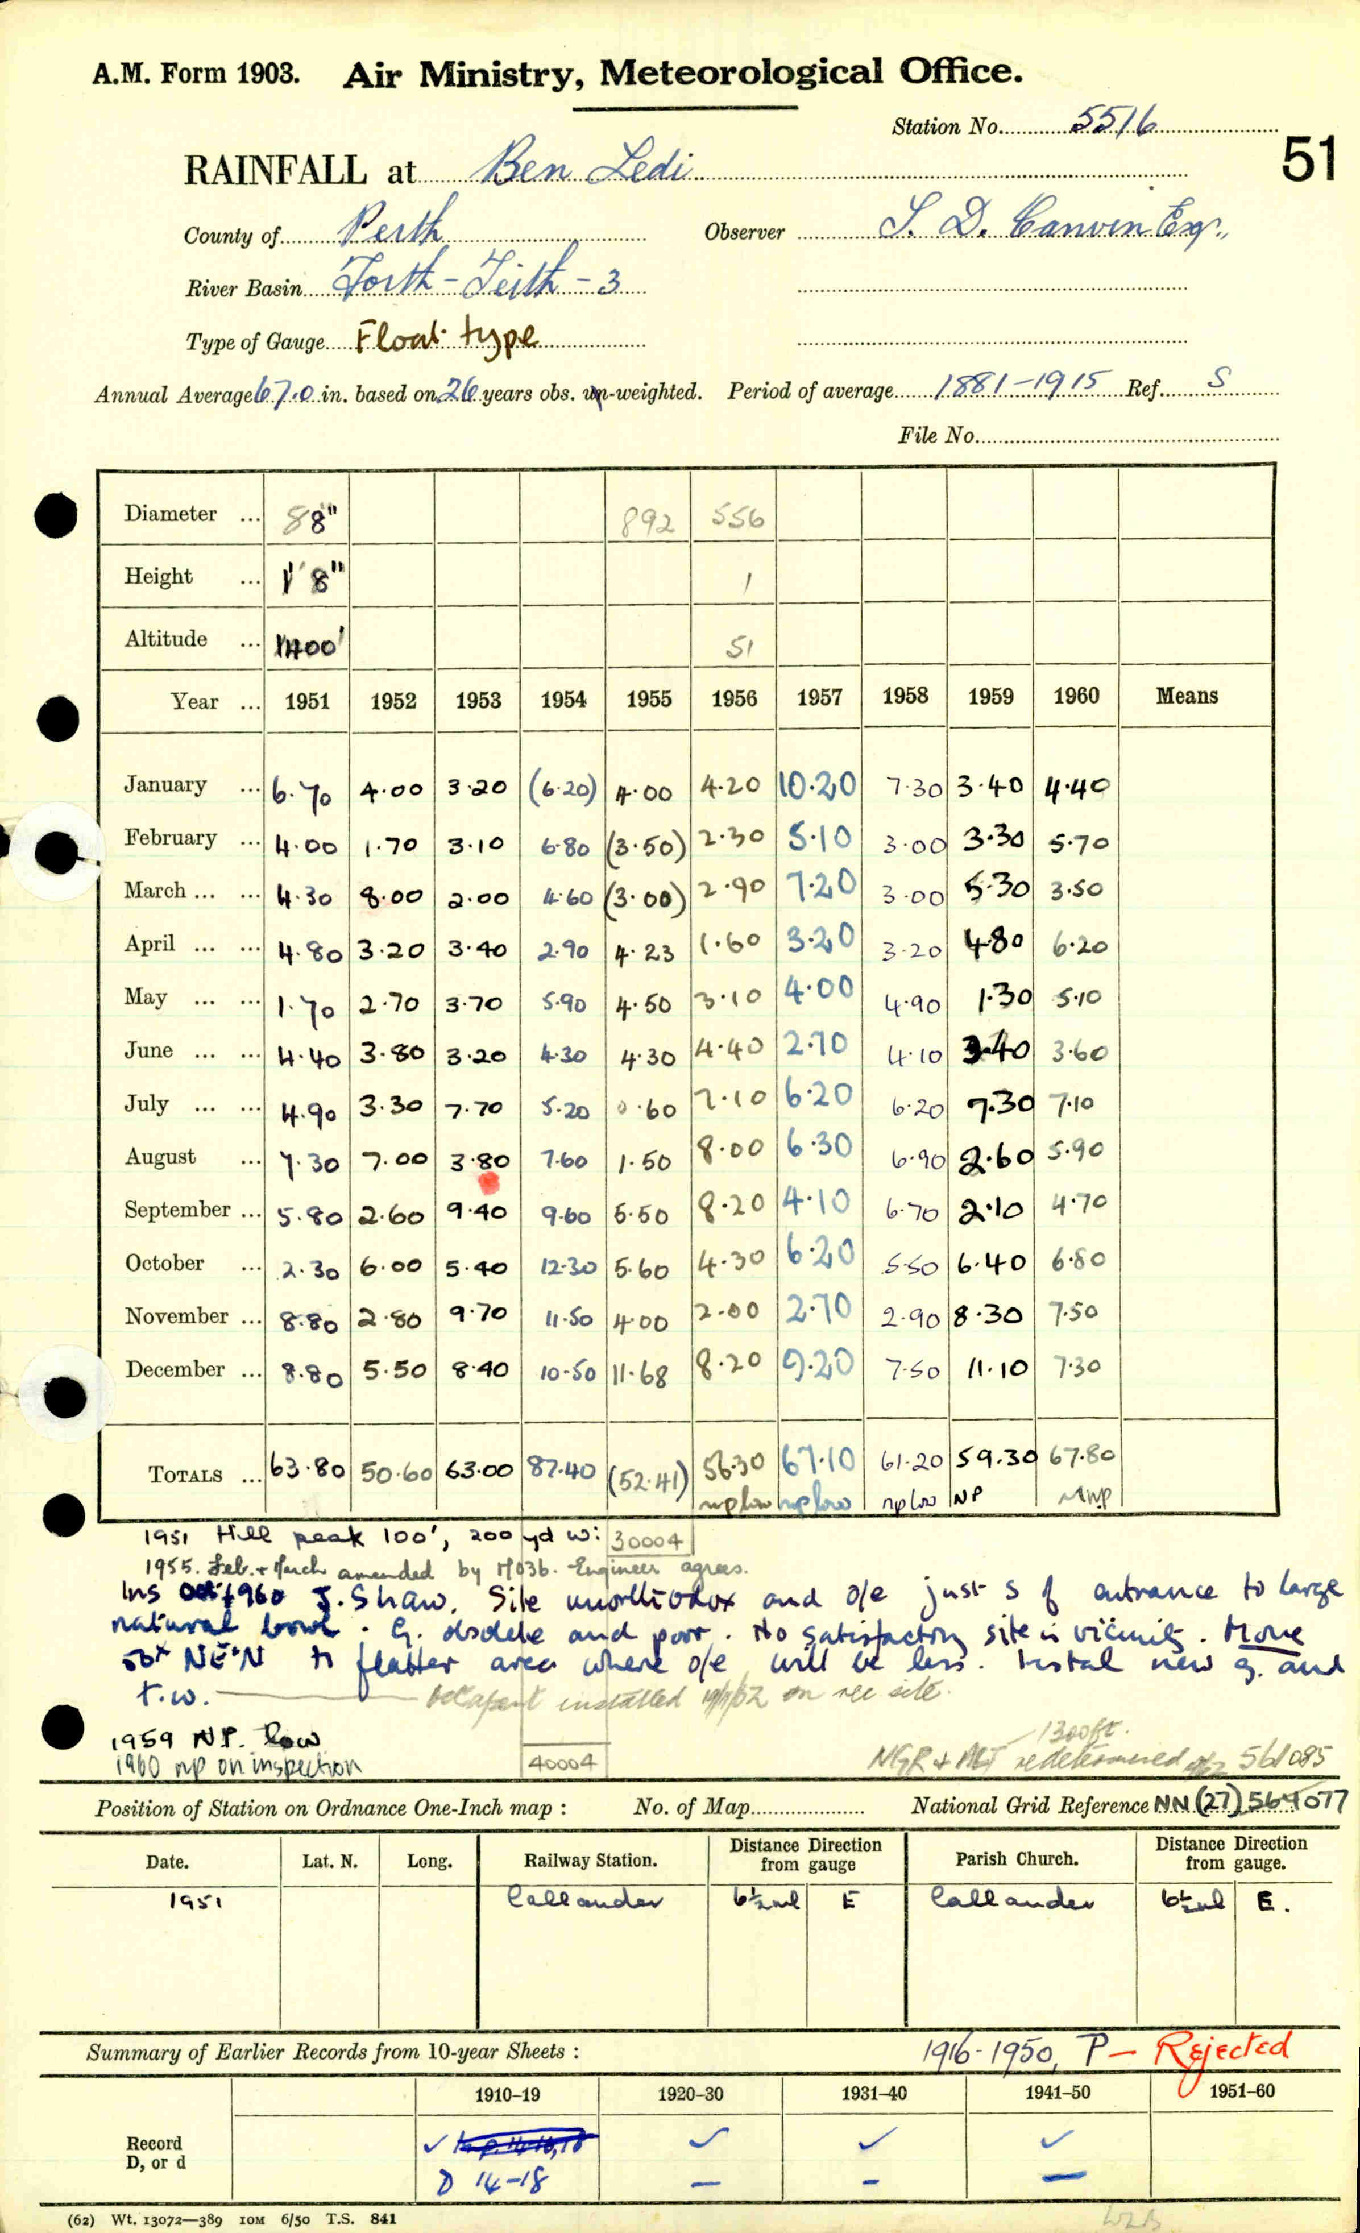 A.M. Form 1903. Air Ministry, Meteorological Office.
Station No. 5516
51
RAINFALL at Ben Ledi
County of Perth Observer
River Basin Forth - Teith - 3
Type of Gauge Float type
Annual Average 67.0 in. based on 26 years obs. un-weighted. Period of average 1881-1915 Ref. S
File No.
Diameter ... 8" 892 556
Height ... 1' 8" 1
Altitude ... 1400' 51
Year ... 1951 1952 1953 1954 1955 1956 1957 1958 1959 1960 Means
January ... 6.70 4.00 3.20 (6.20) 4.00 4.20 10.20 7.30 3.40 4.40
February ... 4.00 1.70 3.10 6.80 (3.50) 2.30 5.10 3.00 3.30 5.70
March ... ... 4.30 8.00 2.00 4.60 (3.00) 2.90 7.20 3.00 5.30 3.50
April ... ... 4.80 3.20 3.40 2.90 4.23 1.60 3.20 3.20 4.80 6.20
May ... ... 1.70 2.70 3.70 5.90 4.50 3.10 4.00 4.90 1.30 5.10
June ... ... 4.40 3.80 3.20 4.30 4.30 4.40 2.70 4.10 3.40 3.60
July ... ... 4.90 3.30 7.70 5.20 0.60 7.10 6.20 6.20 7.30 7.10
August ... 7.30 7.00 3.80 7.60 1.50 8.00 6.30 6.90 2.60 5.90
September ... 5.80 2.60 9.40 9.60 5.50 8.20 4.10 6.70 2.10 4.70
October ... 2.30 6.00 5.40 12.30 5.60 4.30 6.20 5.50 6.40 6.80
November ... 8.80 2.80 9.70 11.50 4.00 2.00 2.70 2.90 8.30 7.50
December ... 8.80 5.50 8.40 10.50 11.68 8.20 9.20 7.50 11.10 7.30
TOTALS ... 63.80 50.60 63.00 87.40 (52.41) 56.30 67.10 61.20 59.30 67.80
np low np low np low NP
1951 Hill peak 100', 200 yd W: 30004
1955. Feb. + March amended by M03b. Engineer agrees.
Ins Oct 1960 J. Shaw. Site unorthodox and o/e just S of entrance to large
natural bowl. G. obsolete and poor. No satisfactory site in vicinity. Move
50x NE'N to flatter area where o/e will be less. Instal new g. and
t.w. installed on site.
1959 N.P. low 1300ft.
1960 np on inspection 40004 NGR + ALT redetermined 561085
Position of Station on Ordnance One-Inch map : No. of Map National Grid Reference NN (27) 564077
Date. Lat. N. Long. Railway Station. Distance from gauge Direction Parish Church. Distance from gauge. Direction
1951 Callander 6½ ml E Callander 6½ ml E.
Summary of Earlier Records from 10-year Sheets : 1916-1950, P - Rejected
1910–19 1920–30 1931–40 1941–50 1951–60
Record ✓ ✓ ✓ ✓
D, or d D 14-18 — — —
(62) Wt. 13072—389 10M 6/50 T.S. 841